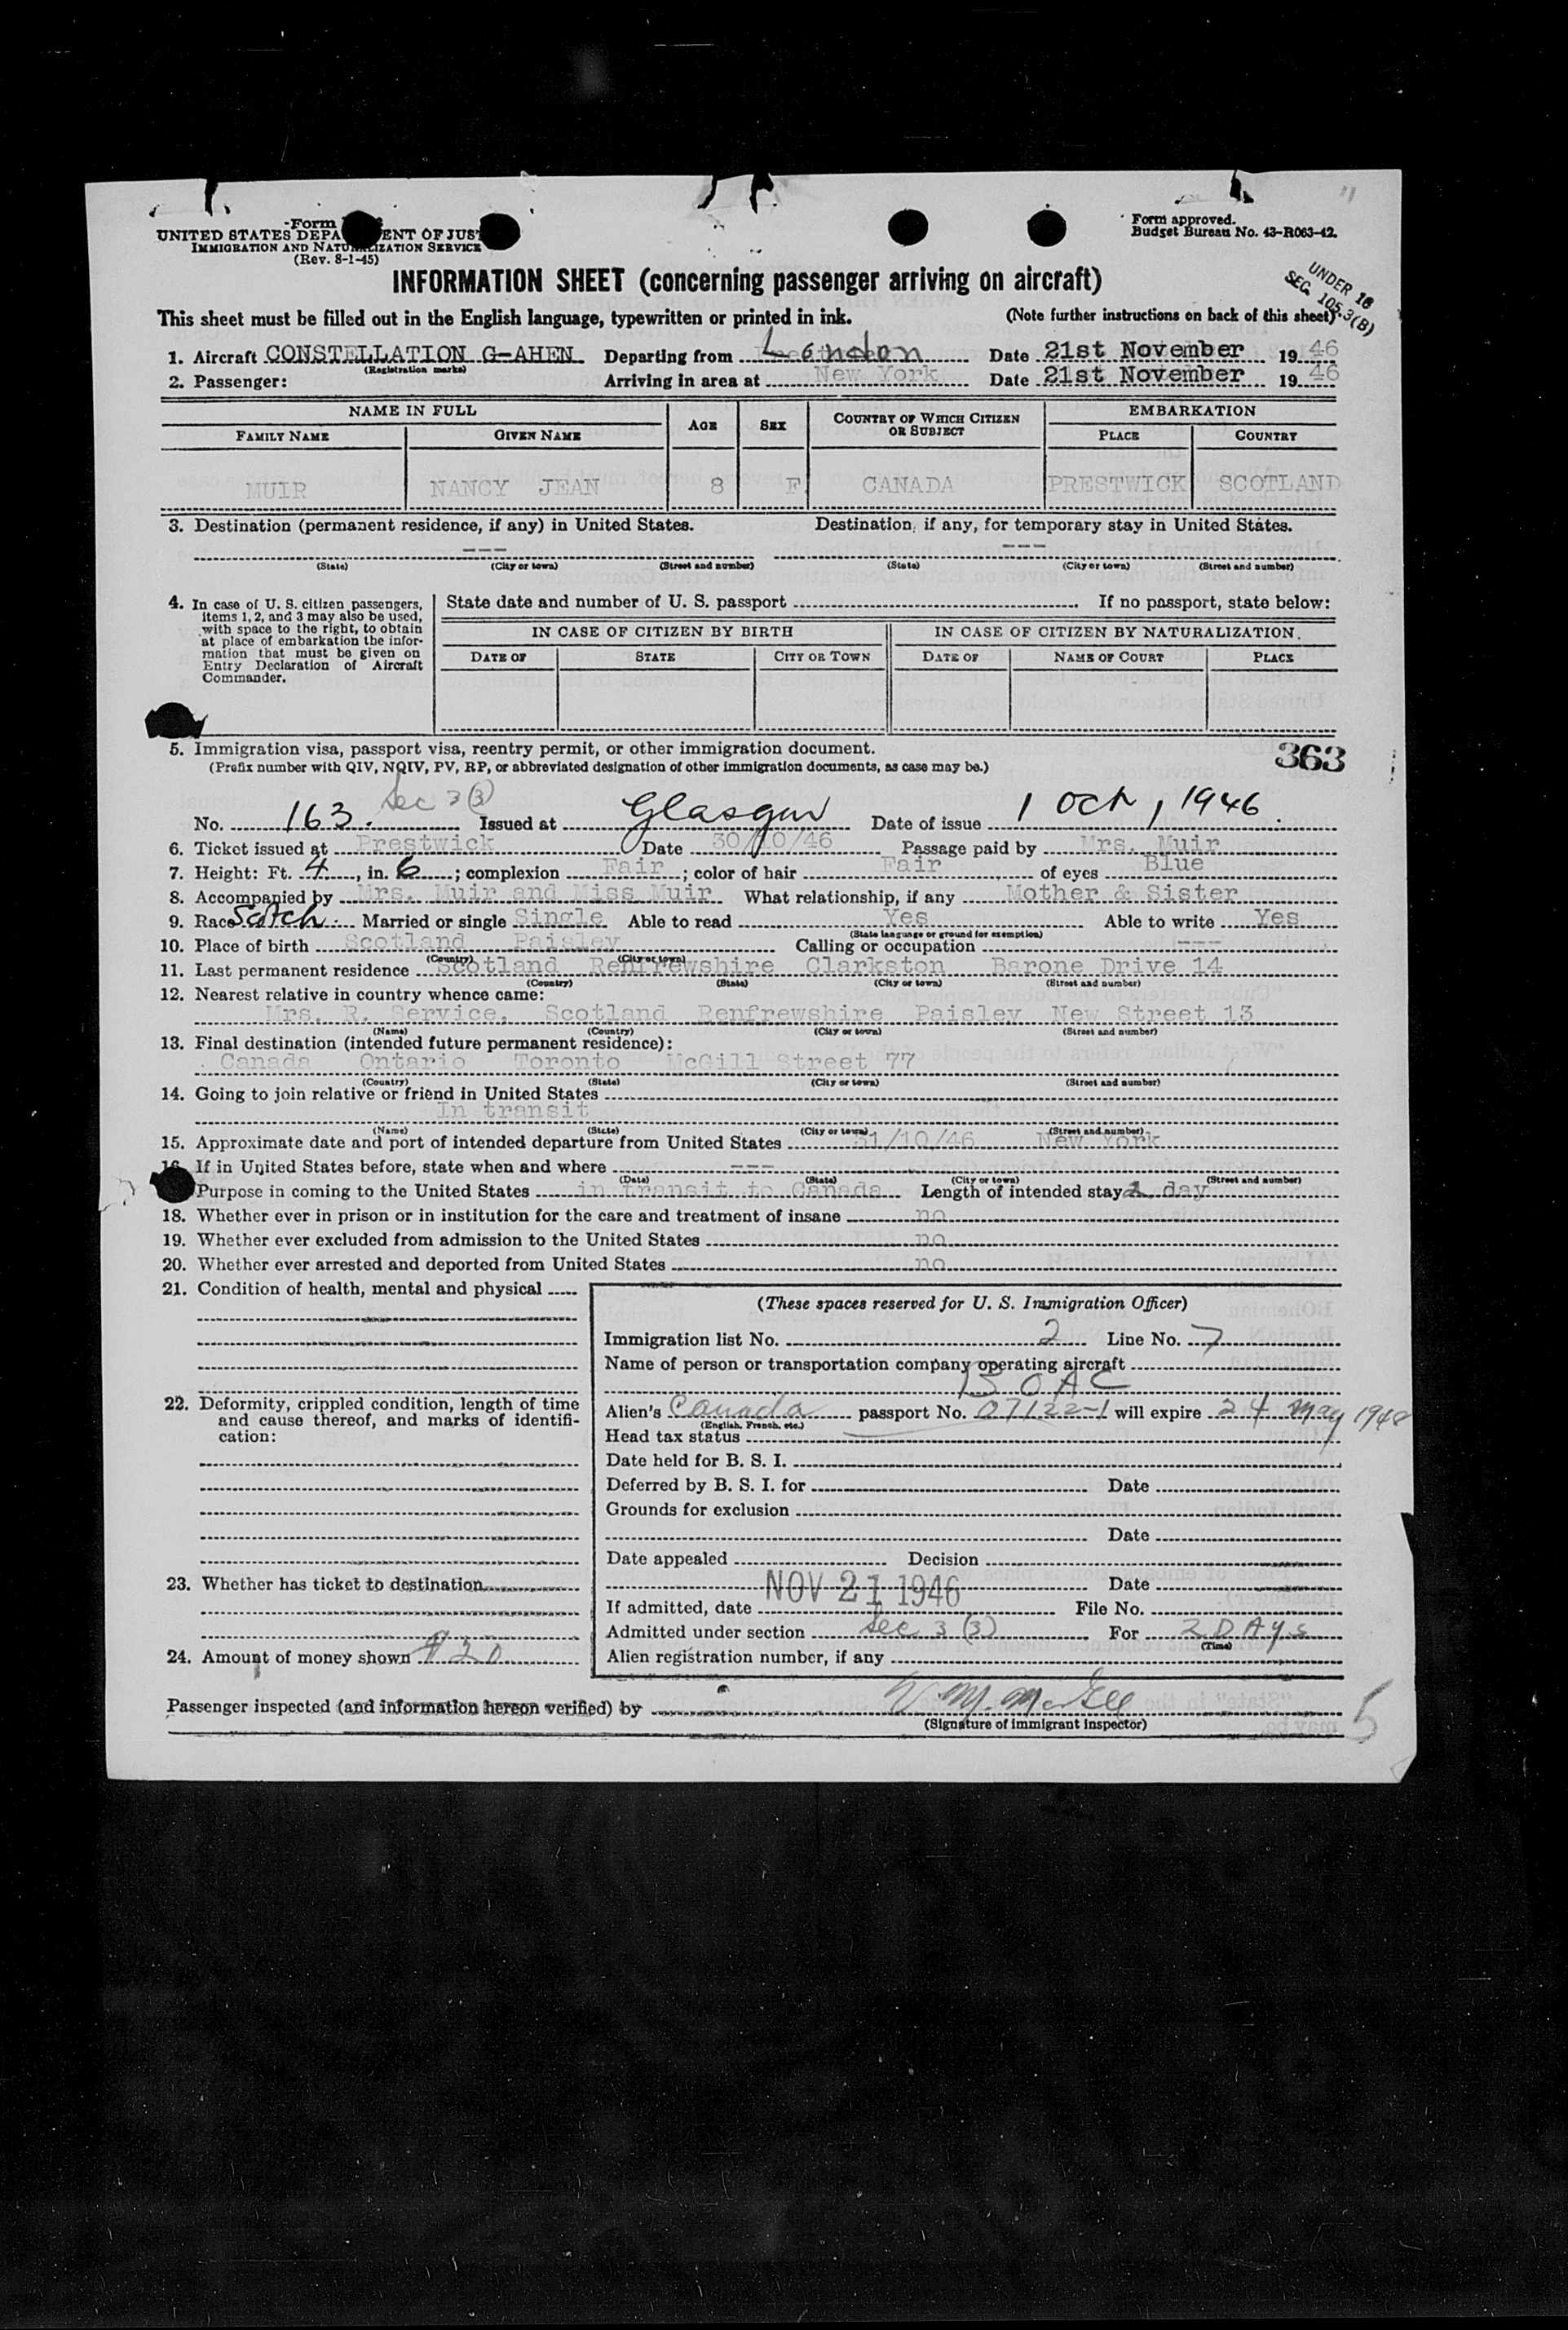 Form
UNITED STATES DEPA ENT OF JUS
IMMIGRATION AND NATURALIZATION SERVICE
(Rev. 8-1-45)
Form approved.
Budget Bureau No. 43-R063-42.
INFORMATION SHEET (concerning passenger arriving on aircraft)
UNDER 16
SEC. 105.3(B)
This sheet must be filled out in the English language, typewritten or printed in ink. (Note further instructions on back of this sheet)
1. Aircraft CONSTELLATION G-AHEN Departing from London Date 21st November 1946
(Registration marks)
2. Passenger: Arriving in area at New York Date 21st November 1946
NAME IN FULL AGE SEX COUNTRY OF WHICH CITIZEN OR SUBJECT EMBARKATION
FAMILY NAME GIVEN NAME PLACE COUNTRY
MUIR NANCY JEAN 8 F CANADA PRESTWICK SCOTLAND
3. Destination (permanent residence, if any) in United States. Destination, if any, for temporary stay in United States.
--- ---
(State) (City or town) (Street and number) (State) (City or town) (Street and number)
4. In case of U. S. citizen passengers, items 1, 2, and 3 may also be used, with space to the right, to obtain at place of embarkation the information that must be given on Entry Declaration of Aircraft Commander.
State date and number of U. S. passport If no passport, state below:
IN CASE OF CITIZEN BY BIRTH IN CASE OF CITIZEN BY NATURALIZATION.
DATE OF STATE CITY OR TOWN DATE OF NAME OF COURT PLACE
5. Immigration visa, passport visa, reentry permit, or other immigration document.
363
(Prefix number with QIV, NQIV, PV, RP, or abbreviated designation of other immigration documents, as case may be.)
Sec 3(3)
No. 163. Issued at Glasgow Date of issue 1 Oct, 1946.
6. Ticket issued at Prestwick Date 30/10/46 Passage paid by Mrs. Muir
7. Height: Ft. 4, in. 6; complexion Fair; color of hair Fair of eyes Blue
8. Accompanied by Mrs. Muir and Miss Muir What relationship, if any Mother & Sister
9. Race Scotch. Married or single Single Able to read Yes Able to write Yes
(State language or ground for exemption)
10. Place of birth Scotland Paisley Calling or occupation ---
(Country) (City or town)
11. Last permanent residence Scotland Renfrewshire Clarkston Barone Drive 14
(Country) (State) (City or town) (Street and number)
12. Nearest relative in country whence came:
Mrs. R. Service, Scotland Renfrewshire Paisley New Street 13
(Name) (Country) (City or town) (Street and number)
13. Final destination (intended future permanent residence):
Canada Ontario Toronto McGill Street 77
(Country) (State) (City or town) (Street and number)
14. Going to join relative or friend in United States
In transit
(Name) (State) (City or town) (Street and number)
15. Approximate date and port of intended departure from United States 31/10/46 New York
16. If in United States before, state when and where ---
(Date) (State) (City or town) (Street and number)
Purpose in coming to the United States in transit to Canada Length of intended stay 1 day
18. Whether ever in prison or in institution for the care and treatment of insane no
19. Whether ever excluded from admission to the United States no
20. Whether ever arrested and deported from United States no
21. Condition of health, mental and physical
22. Deformity, crippled condition, length of time and cause thereof, and marks of identification:
23. Whether has ticket to destination
24. Amount of money shown $20
(These spaces reserved for U. S. Immigration Officer)
Immigration list No. 2 Line No. 7
Name of person or transportation company operating aircraft
BOAC
Alien's Canada passport No. 07122-1 will expire 24 May 1948
(English, French, etc.)
Head tax status
Date held for B. S. I.
Deferred by B. S. I. for Date
Grounds for exclusion
Date
Date appealed Decision
NOV 21 1946 Date
If admitted, date File No.
Admitted under section Sec 3 (3) For 2 DAYS
(Time)
Alien registration number, if any
Passenger inspected (and information hereon verified) by
(Signature of immigrant inspector)
5